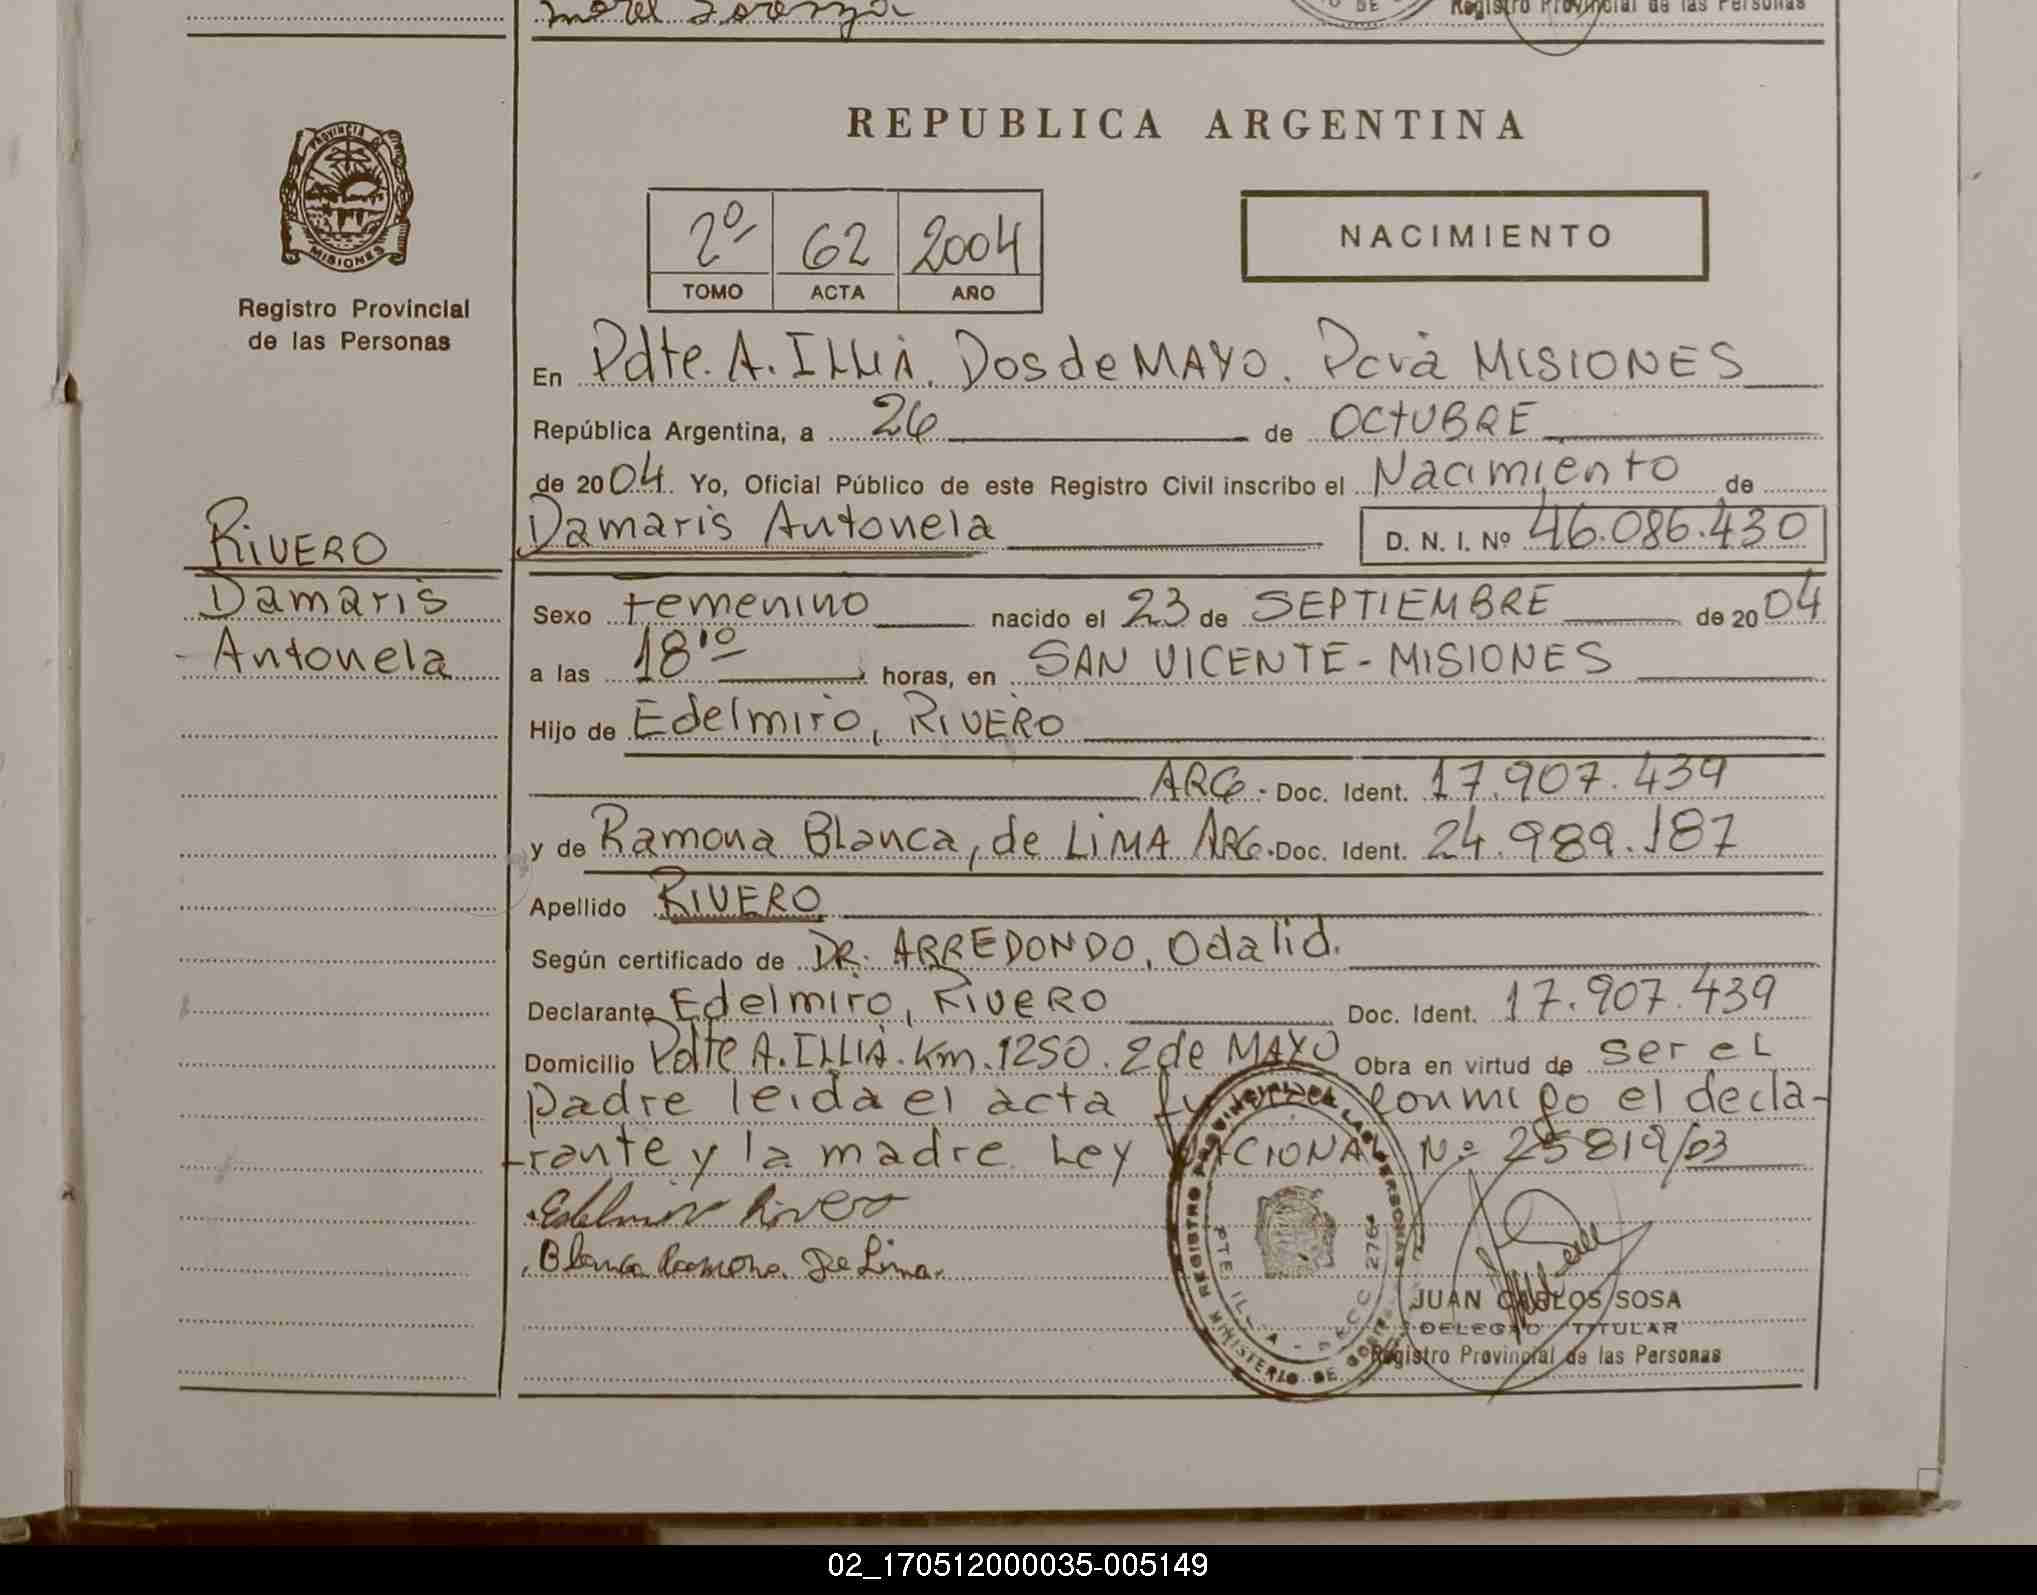 Registro Provincial de las Personas
DE
PROVINCIA DE
MISIONES
Registro Provincial
de las Personas
REPUBLICA ARGENTINA
2º 62 2004
TOMO ACTA AÑO
NACIMIENTO
En Pdte. A. ILLIA. Dos de MAYO. Pcvia MISIONES
República Argentina, a 26 de OCTUBRE
de 2004. Yo, Oficial Público de este Registro Civil inscribo el Nacimiento de
Damaris Antonela D. N. I. Nº 46.086.430
RIVERO
Damaris
Antonela
Sexo Femenino nacido el 23 de SEPTIEMBRE de 2004
a las 18'10 horas, en SAN VICENTE - MISIONES
Hijo de Edelmiro, RIVERO
ARG. Doc. Ident. 17.907.439
y de Ramona Blanca, de LIMA ARG. Doc. Ident. 24.989.187
Apellido RIVERO
Según certificado de DR. ARREDONDO, Odalid.
Declarante Edelmiro, RIVERO Doc. Ident. 17.907.439
Domicilio Pdte A. ILLIA. Km. 1250. 2 de MAYO Obra en virtud de ser el
padre leida el acta conmigo el decla-
rante y la madre Ley NACIONAL Nº 25819/03
Edelmiro Rivero
Blanca Ramona De Lima.
REGISTRO PROVINCIAL DE LAS PERSONAS
MINISTERIO DE GOBIE
PTE. ILLIA - SECC 276
JUAN CARLOS SOSA
DELEGADO TITULAR
Registro Provincial de las Personas
02_170512000035-005149